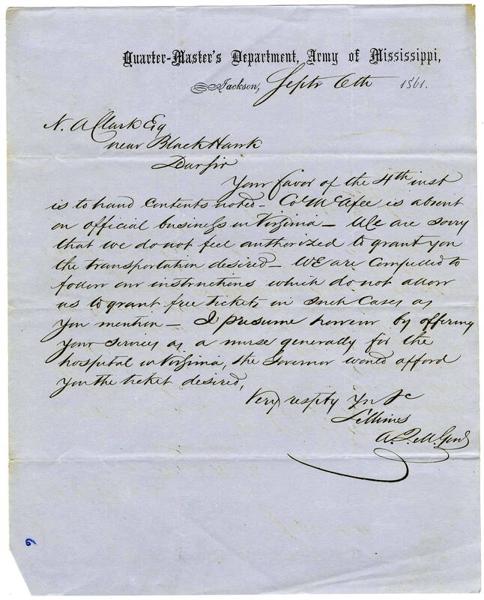 Quarter-Master's Department, Army of Mississippi,
Jackson, Septr 6th 1861.
N. A Clark Esq
near Black Hawk
Dear Sir
Your favor of the 4th inst
is to hand Contents noted - Col McAfee is absent
on official business in Virginia - We are sorry
that we do not feel authorized to grant you
the transportation desired - We are compelled to
follow our instructions which do not allow
us to grant free tickets in such Cases as
you mention - I presume however by offering
your services as a nurse generally for the
hospital in Virginia, the Governor would afford
you the ticket desired,
Very respty Yrs &c
A. Q. M. Genl
6